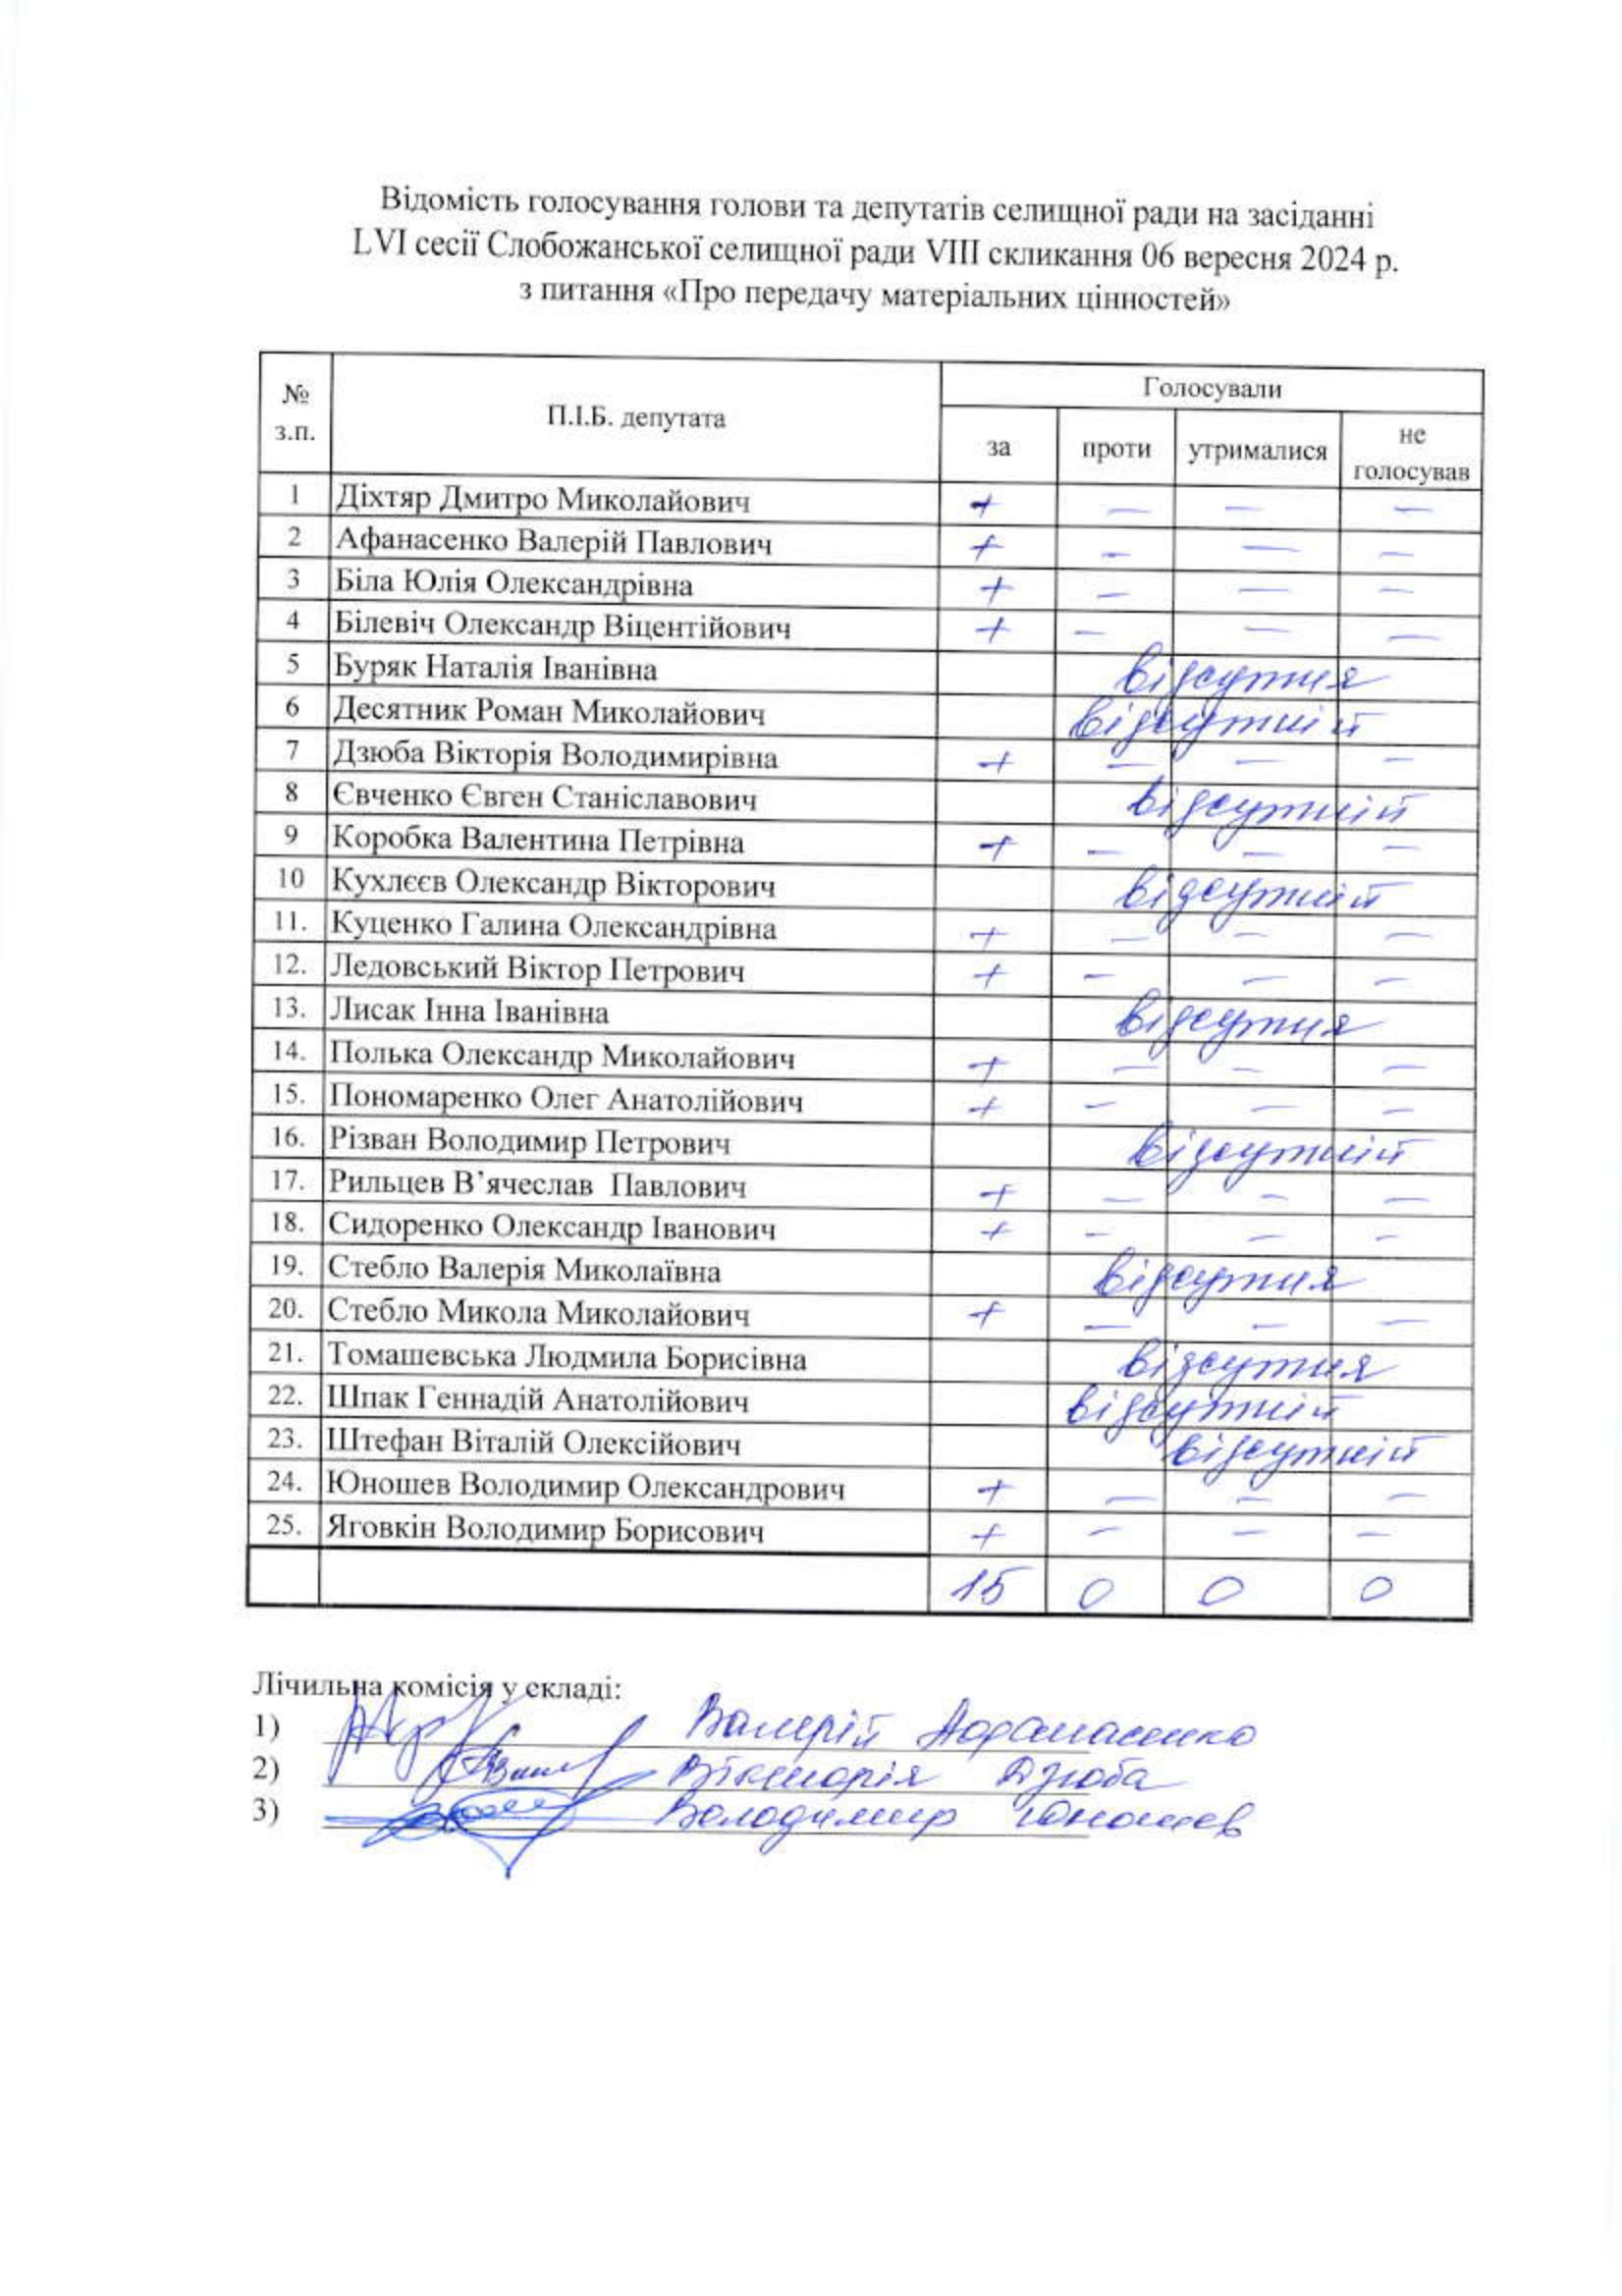 Відомість голосування голови та депутатів селищної ради на засіданні
LVI сесії Слобожанської селищної ради VIII скликання 06 вересня 2024 р.
з питання «Про передачу матеріальних цінностей»
№ з.п. П.І.Б. депутата Голосували
за проти утрималися не голосував
1 Діхтяр Дмитро Миколайович + — — —
2 Афанасенко Валерій Павлович + — — —
3 Біла Юлія Олександрівна + — — —
4 Білевіч Олександр Віцентійович + — — —
5 Буряк Наталія Іванівна відсутня
6 Десятник Роман Миколайович відсутній
7 Дзюба Вікторія Володимирівна + — — —
8 Євченко Євген Станіславович відсутній
9 Коробка Валентина Петрівна + — — —
10 Кухлєєв Олександр Вікторович відсутній
11. Куценко Галина Олександрівна + — — —
12. Ледовський Віктор Петрович + — — —
13. Лисак Інна Іванівна відсутня
14. Полька Олександр Миколайович + — — —
15. Пономаренко Олег Анатолійович + — — —
16. Різван Володимир Петрович відсутній
17. Рильцев В’ячеслав Павлович + — — —
18. Сидоренко Олександр Іванович + — — —
19. Стебло Валерія Миколаївна відсутня
20. Стебло Микола Миколайович + — — —
21. Томашевська Людмила Борисівна відсутня
22. Шпак Геннадій Анатолійович відсутній
23. Штефан Віталій Олексійович відсутній
24. Юношев Володимир Олександрович + — — —
25. Яговкін Володимир Борисович + — — —
15 0 0 0
Лічильна комісія у складі:
1) Валерій Афанасенко
2) Вікторія Дзюба
3) Володимир Юношев